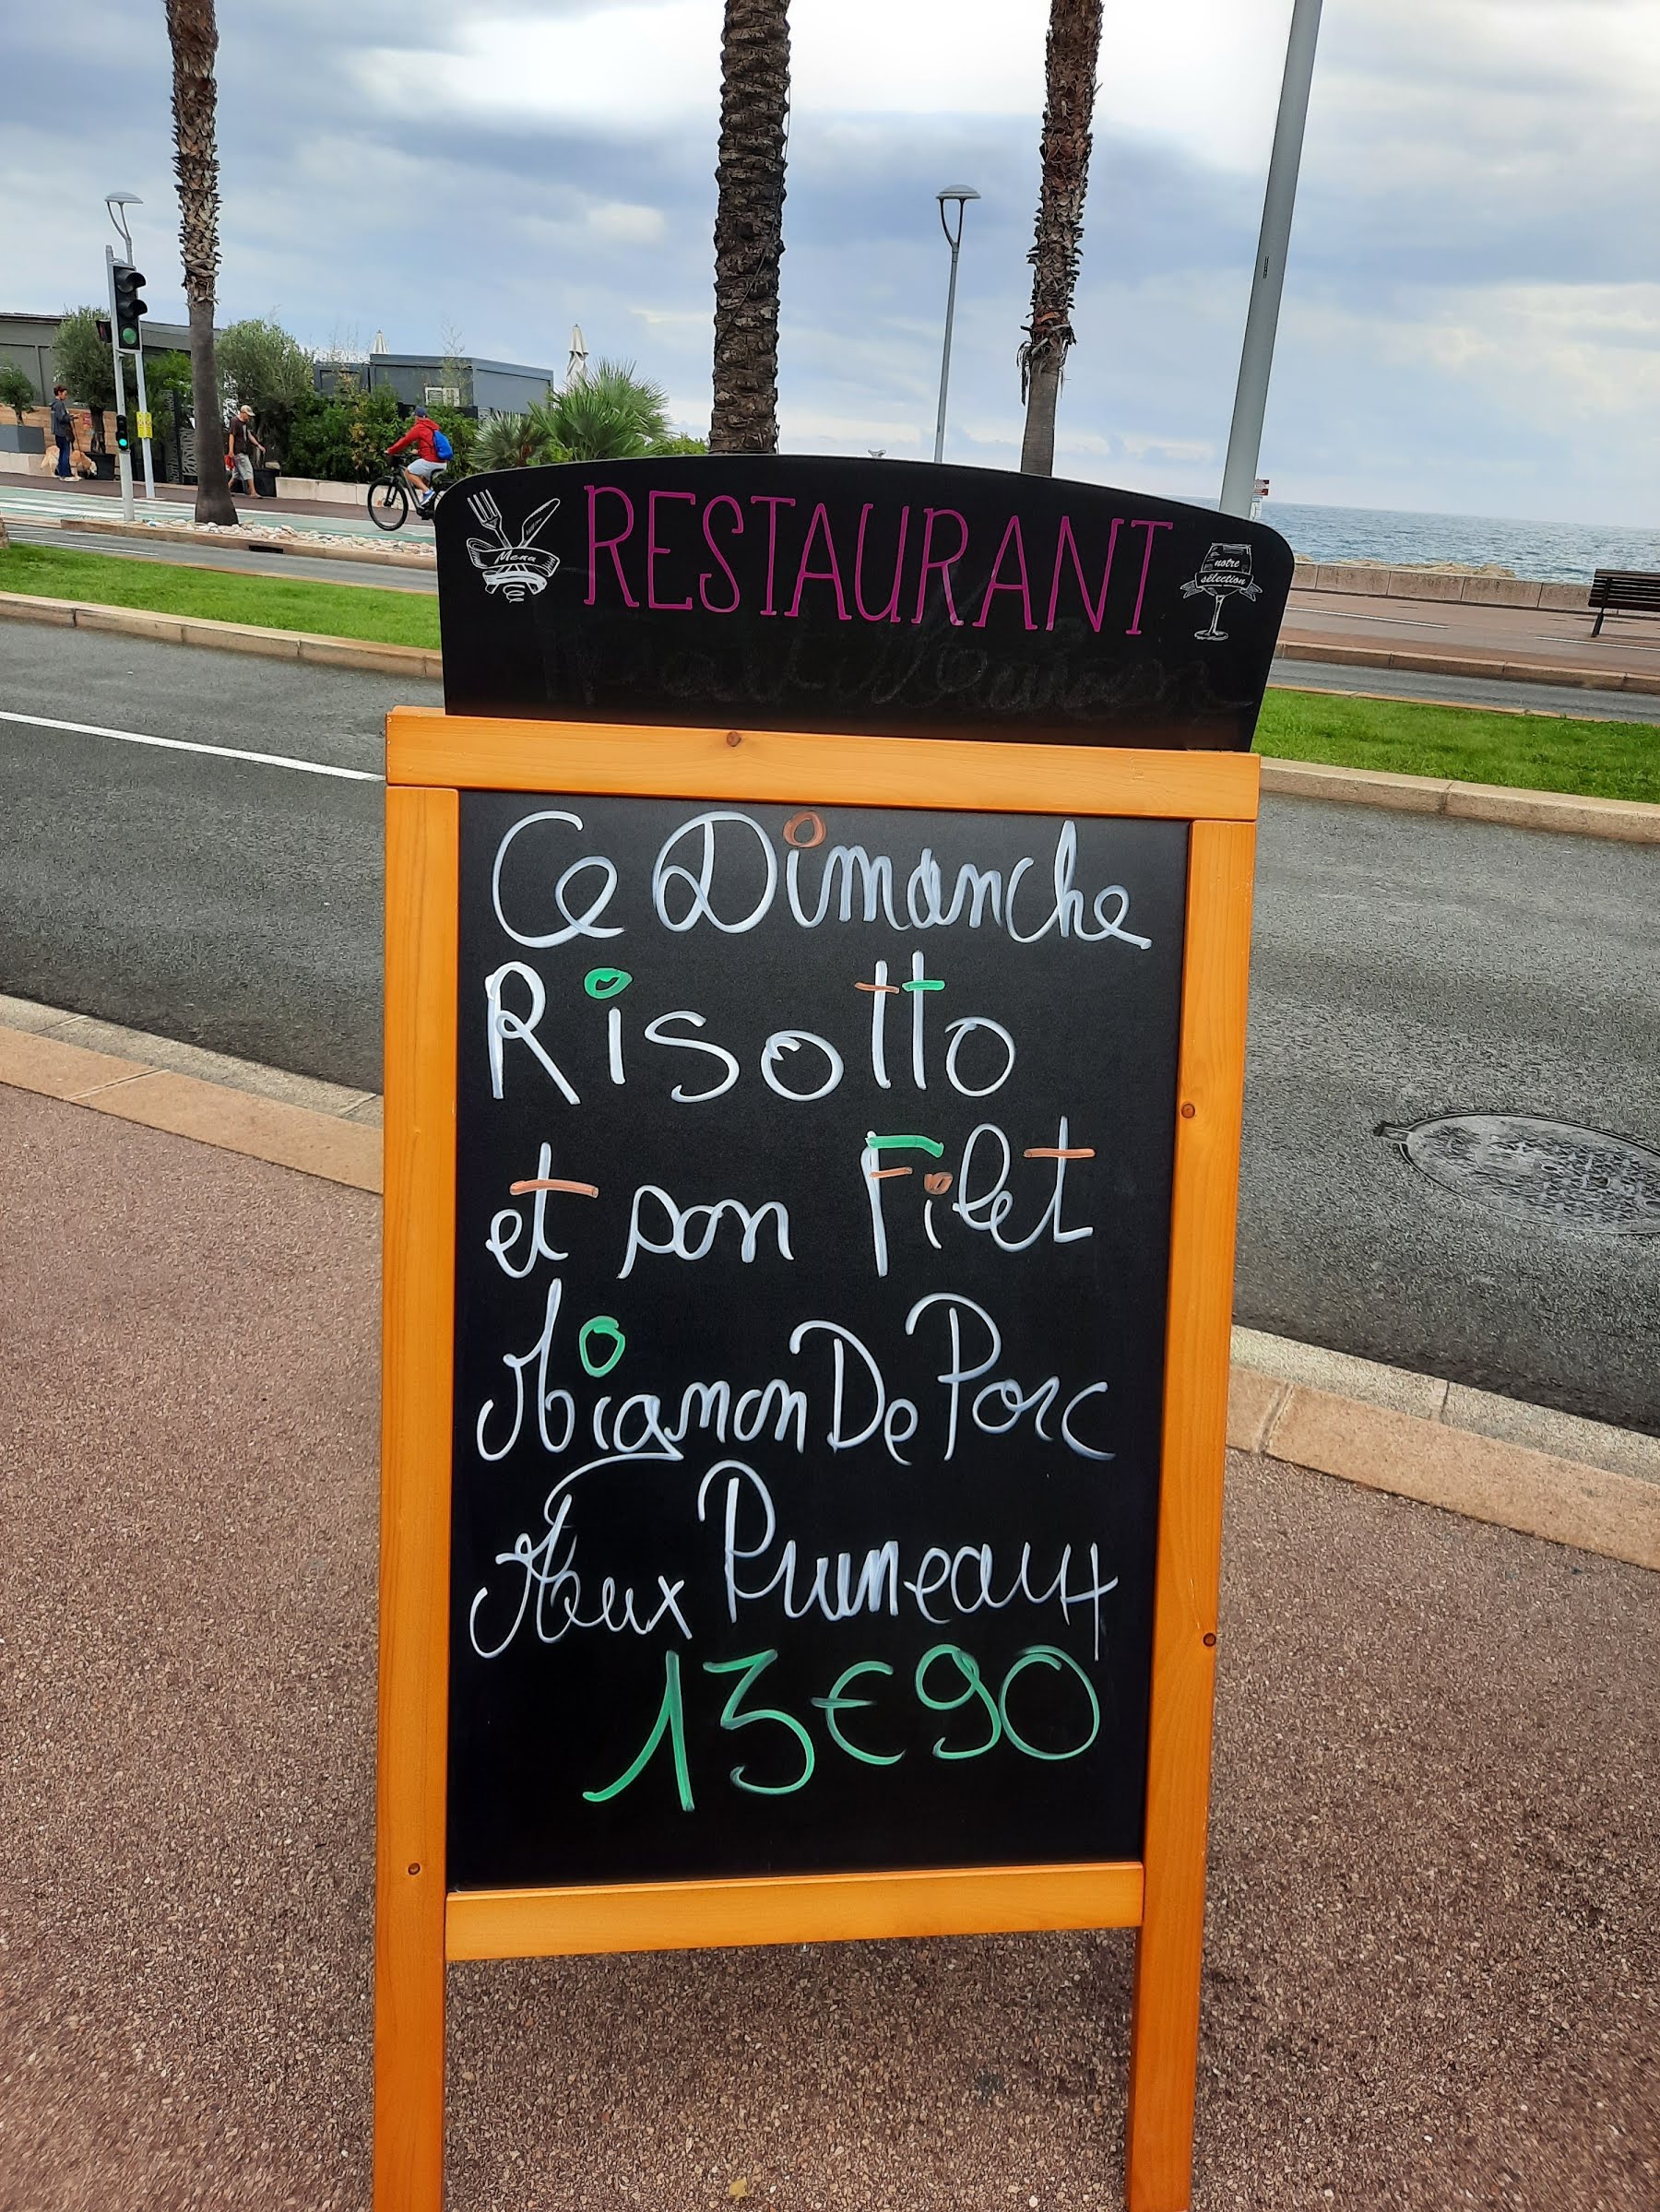 Menu
RESTAURANT
notre
sélection
Ce Dimanche
Risotto
et son Filet
Mignon De Porc
Aux Pruneaux
13€90